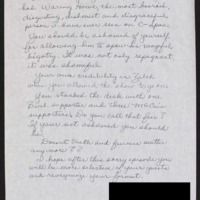 Waring House, the most
disgusting, dishonest and disagreeable
person I have ever seen on C-Span.
You should be ashamed of yourself
for allowing him to spew his
bigotry. It was not only repugnant,
it was shameful.
Your own credibility is
when you allowed the show to
You stacked the desk with one
supporter and three
supporters. Do you call that fair?
If you're not ashamed you should
be.
Doesn't truth and fairness matter
anymore??
I hope after this sorry episode you
will be more selective in your guests
and reorganize your format.